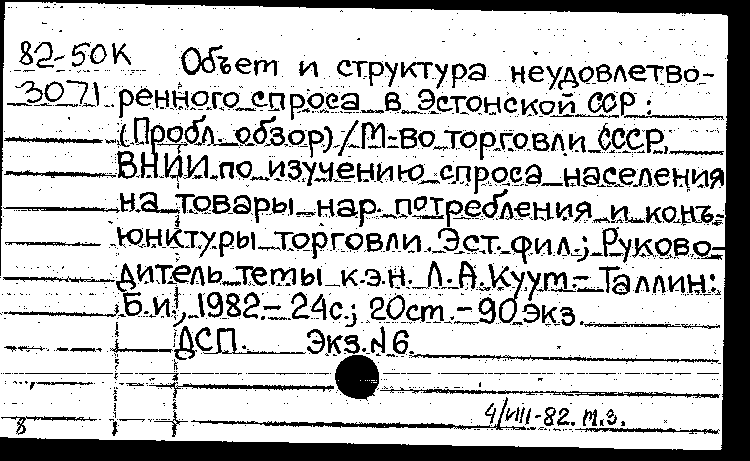 82-50К Объем и структура неудовлетво-
3071 ренного спроса в Эстонской ССР:
(Пробл. обзор)/М-во торговли СССР,
ВНИИ по изучению спроса населения
на товары нар. потребления и конъ-
юнктуры торговли. Эст. фил.; Руково-
дитель темы к.э.н. Л.А.Куут.- Таллин:
Б.и, 1982.- 24с.; 20см.- 90 экз.
ДСП. Экз.N6.
4/VIII-82. т.з.
8